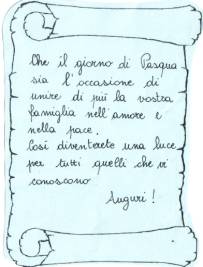 Che il giorno di Pasqua
sia l'occasione di
unire di più la vostra
famiglia nell'amore e
nella pace.
Così diventerete una luce
per tutti quelli che vi
conoscono
Auguri!